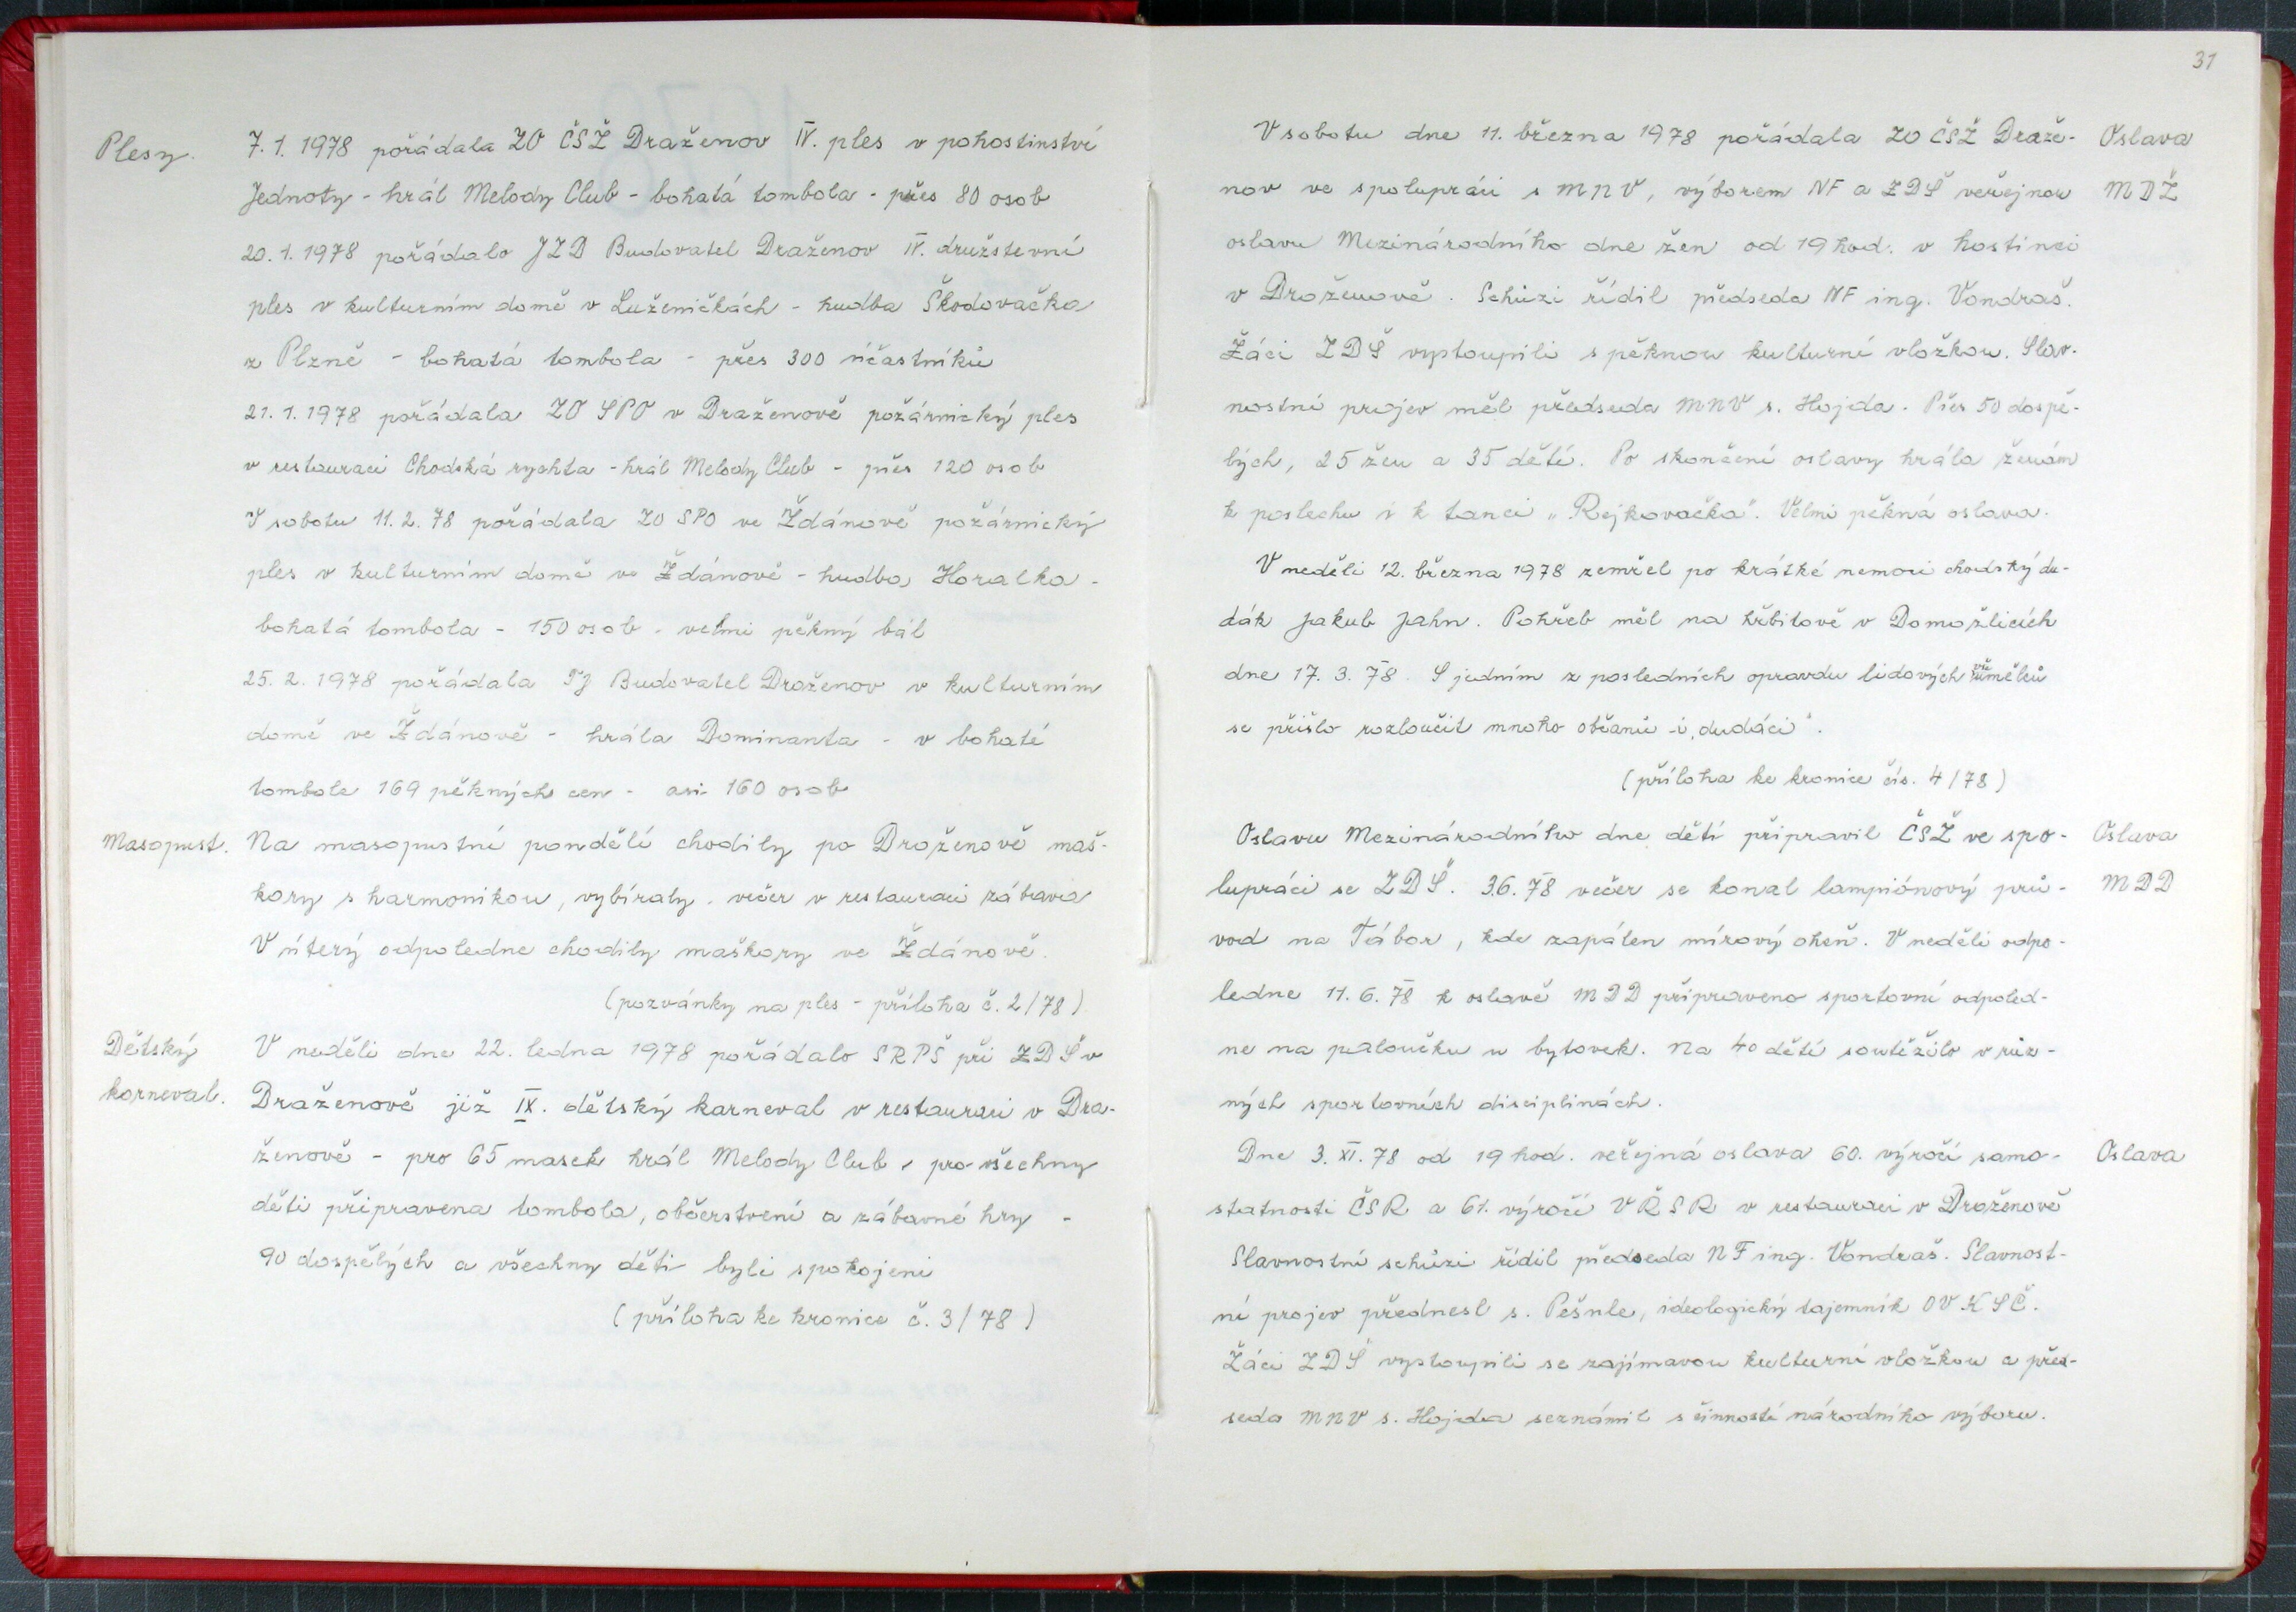 Plesy. 7. 1. 1978 pořádala ZO ČSŽ Draženov IV. ples v pohostinství
Jednoty - hrál Melody Club - bohatá tombola - přes 80 osob
20. 1. 1978 pořádalo JZD Budovatel Draženov IV. družstevní
ples v kulturním domě v Luženičkách - hudba Škodovačka
z Plzně - bohatá tombola - přes 300 účastníků
21. 1. 1978 pořádala ZO SPO v Draženově požárnický ples
v restauraci Chodská rychta - hrál Melody Club - přes 120 osob
V sobotu 11. 2. 78 pořádala ZO SPO ve Ždánově požárnický
ples v kulturním domě ve Ždánově - hudba Horalka -
bohatá tombola - 150 osob - velmi pěkný bál
25. 2. 1978 pořádala TJ Budovatel Draženov v kulturním
domě ve Ždánově - hrála Dominanta - v bohaté
tombole 169 pěkných cen - asi 160 osob
Masopust. Na masopustní pondělí chodily po Draženově maš-
kary s harmonikou, vybíraly - večer v restauraci zábava
V úterý odpoledne chodily maškary ve Ždánově.
(pozvánky na ples - příloha č. 2/78)
Dětský V neděli dne 22. ledna 1978 pořádalo SRPŠ při ZDŠ v
karneval. Draženově již IX. dětský karneval v restauraci v Dra-
ženově - pro 65 masek hrál Melody Club, pro všechny
děti připravena tombola, občerstvení a zábavné hry -
90 dospělých a všechny děti byli spokojeni
(příloha ke kronice č. 3/78)
31
V sobotu dne 11. března 1978 pořádala ZO ČSŽ Draže- Oslava
nov ve spolupráci s MNV, výborem NF a ZDŠ veřejnou MDŽ
oslavu Mezinárodního dne žen od 19 hod. v hostinci
v Draženově. Schůzi řídil předseda NF ing. Vondraš.
Žáci ZDŠ vystoupili s pěknou kulturní vložkou. Slav-
nostní projev měl předseda MNV s. Hojda. Přes 50 dospě-
lých, 25 žen a 35 dětí. Po skončení oslavy hrála ženám
k poslechu i k tanci "Rejkovačka". Velmi pěkná oslava.
V neděli 12. března 1978 zemřel po krátké nemoci chodský du-
dák Jakub Jahn. Pohřeb měl na hřbitově v Domažlicích
dne 17. 3. 78. S jedním z posledních opravdu lidových umělců
se přišlo rozloučit mnoho občanů - i "dudáci".
(příloha ke kronice čís. 4/78)
Oslavu Mezinárodního dne dětí připravil ČSŽ ve spo- Oslava
lupráci se ZDŠ. 3.6. 78 večer se konal lampiónový prů- MDD
vod na Tábor, kde zapálen mírový oheň. V neděli odpo-
ledne 11. 6. 78 k oslavě MDD připraveno sportovní odpoled-
ne na paloučku u bytovek. Na 40 dětí soutěžilo v růz-
ných sportovních disciplinách.
Dne 3. XI. 78 od 19 hod. veřejná oslava 60. výročí samo- Oslava
statnosti ČSR a 61. výročí VŘSR v restauraci v Draženově
Slavnostní schůzi řídil předseda NF ing. Vondraš. Slavnost-
ní projev přednesl s. Pešnle, ideologický tajemník OV KSČ.
Žáci ZDŠ vystoupili se zajímavou kulturní vložkou a před-
seda MNV s. Hojda seznámil s činností národního výboru.